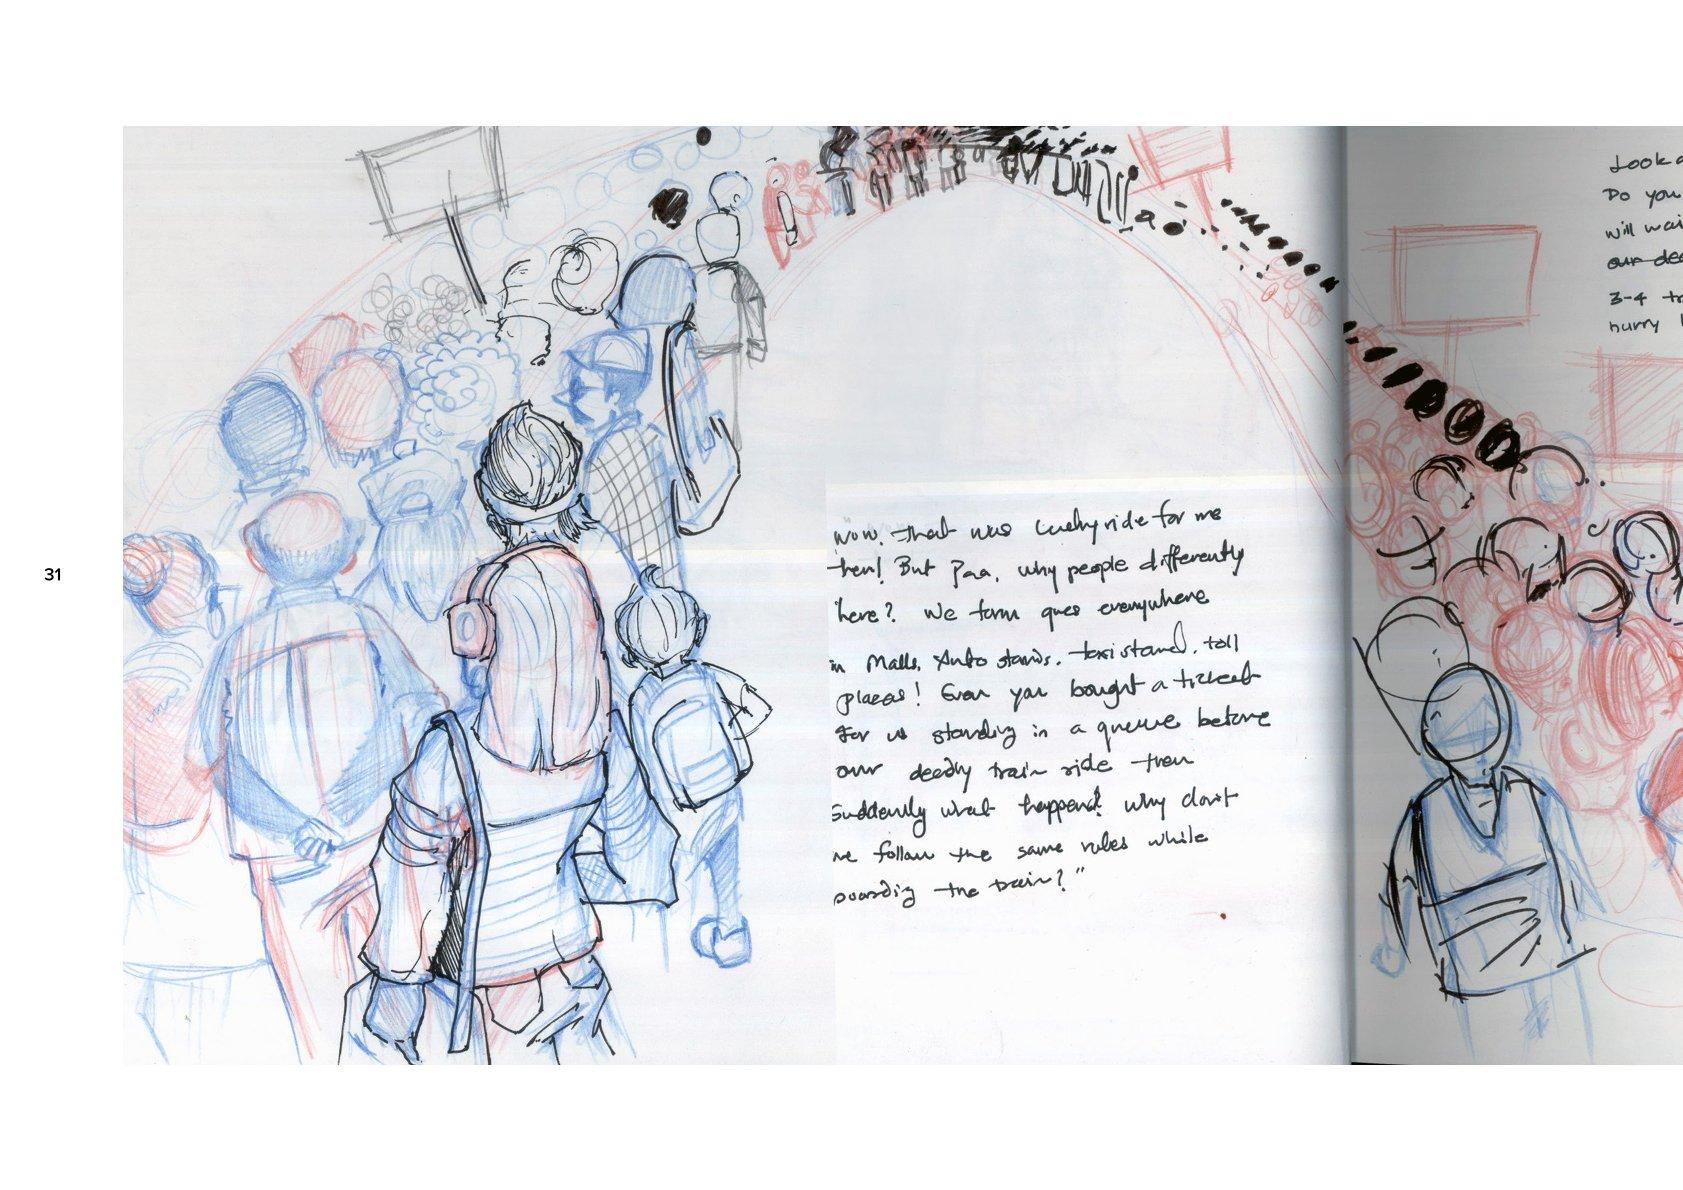 31
"Wow. that was lucky ride for me
then! But Paa, why people differently
here? We form ques everywhere
in Malls, Auto stands, taxi stand, toll
plazas! Even you bought a ticket
for us standing in a queue before
our deadly train ride then
Suddenly what happend? Why don't
we follow the same rules while
boarding the train?"
Look
Do you
will wai
our dea
3-4 tr
hurry